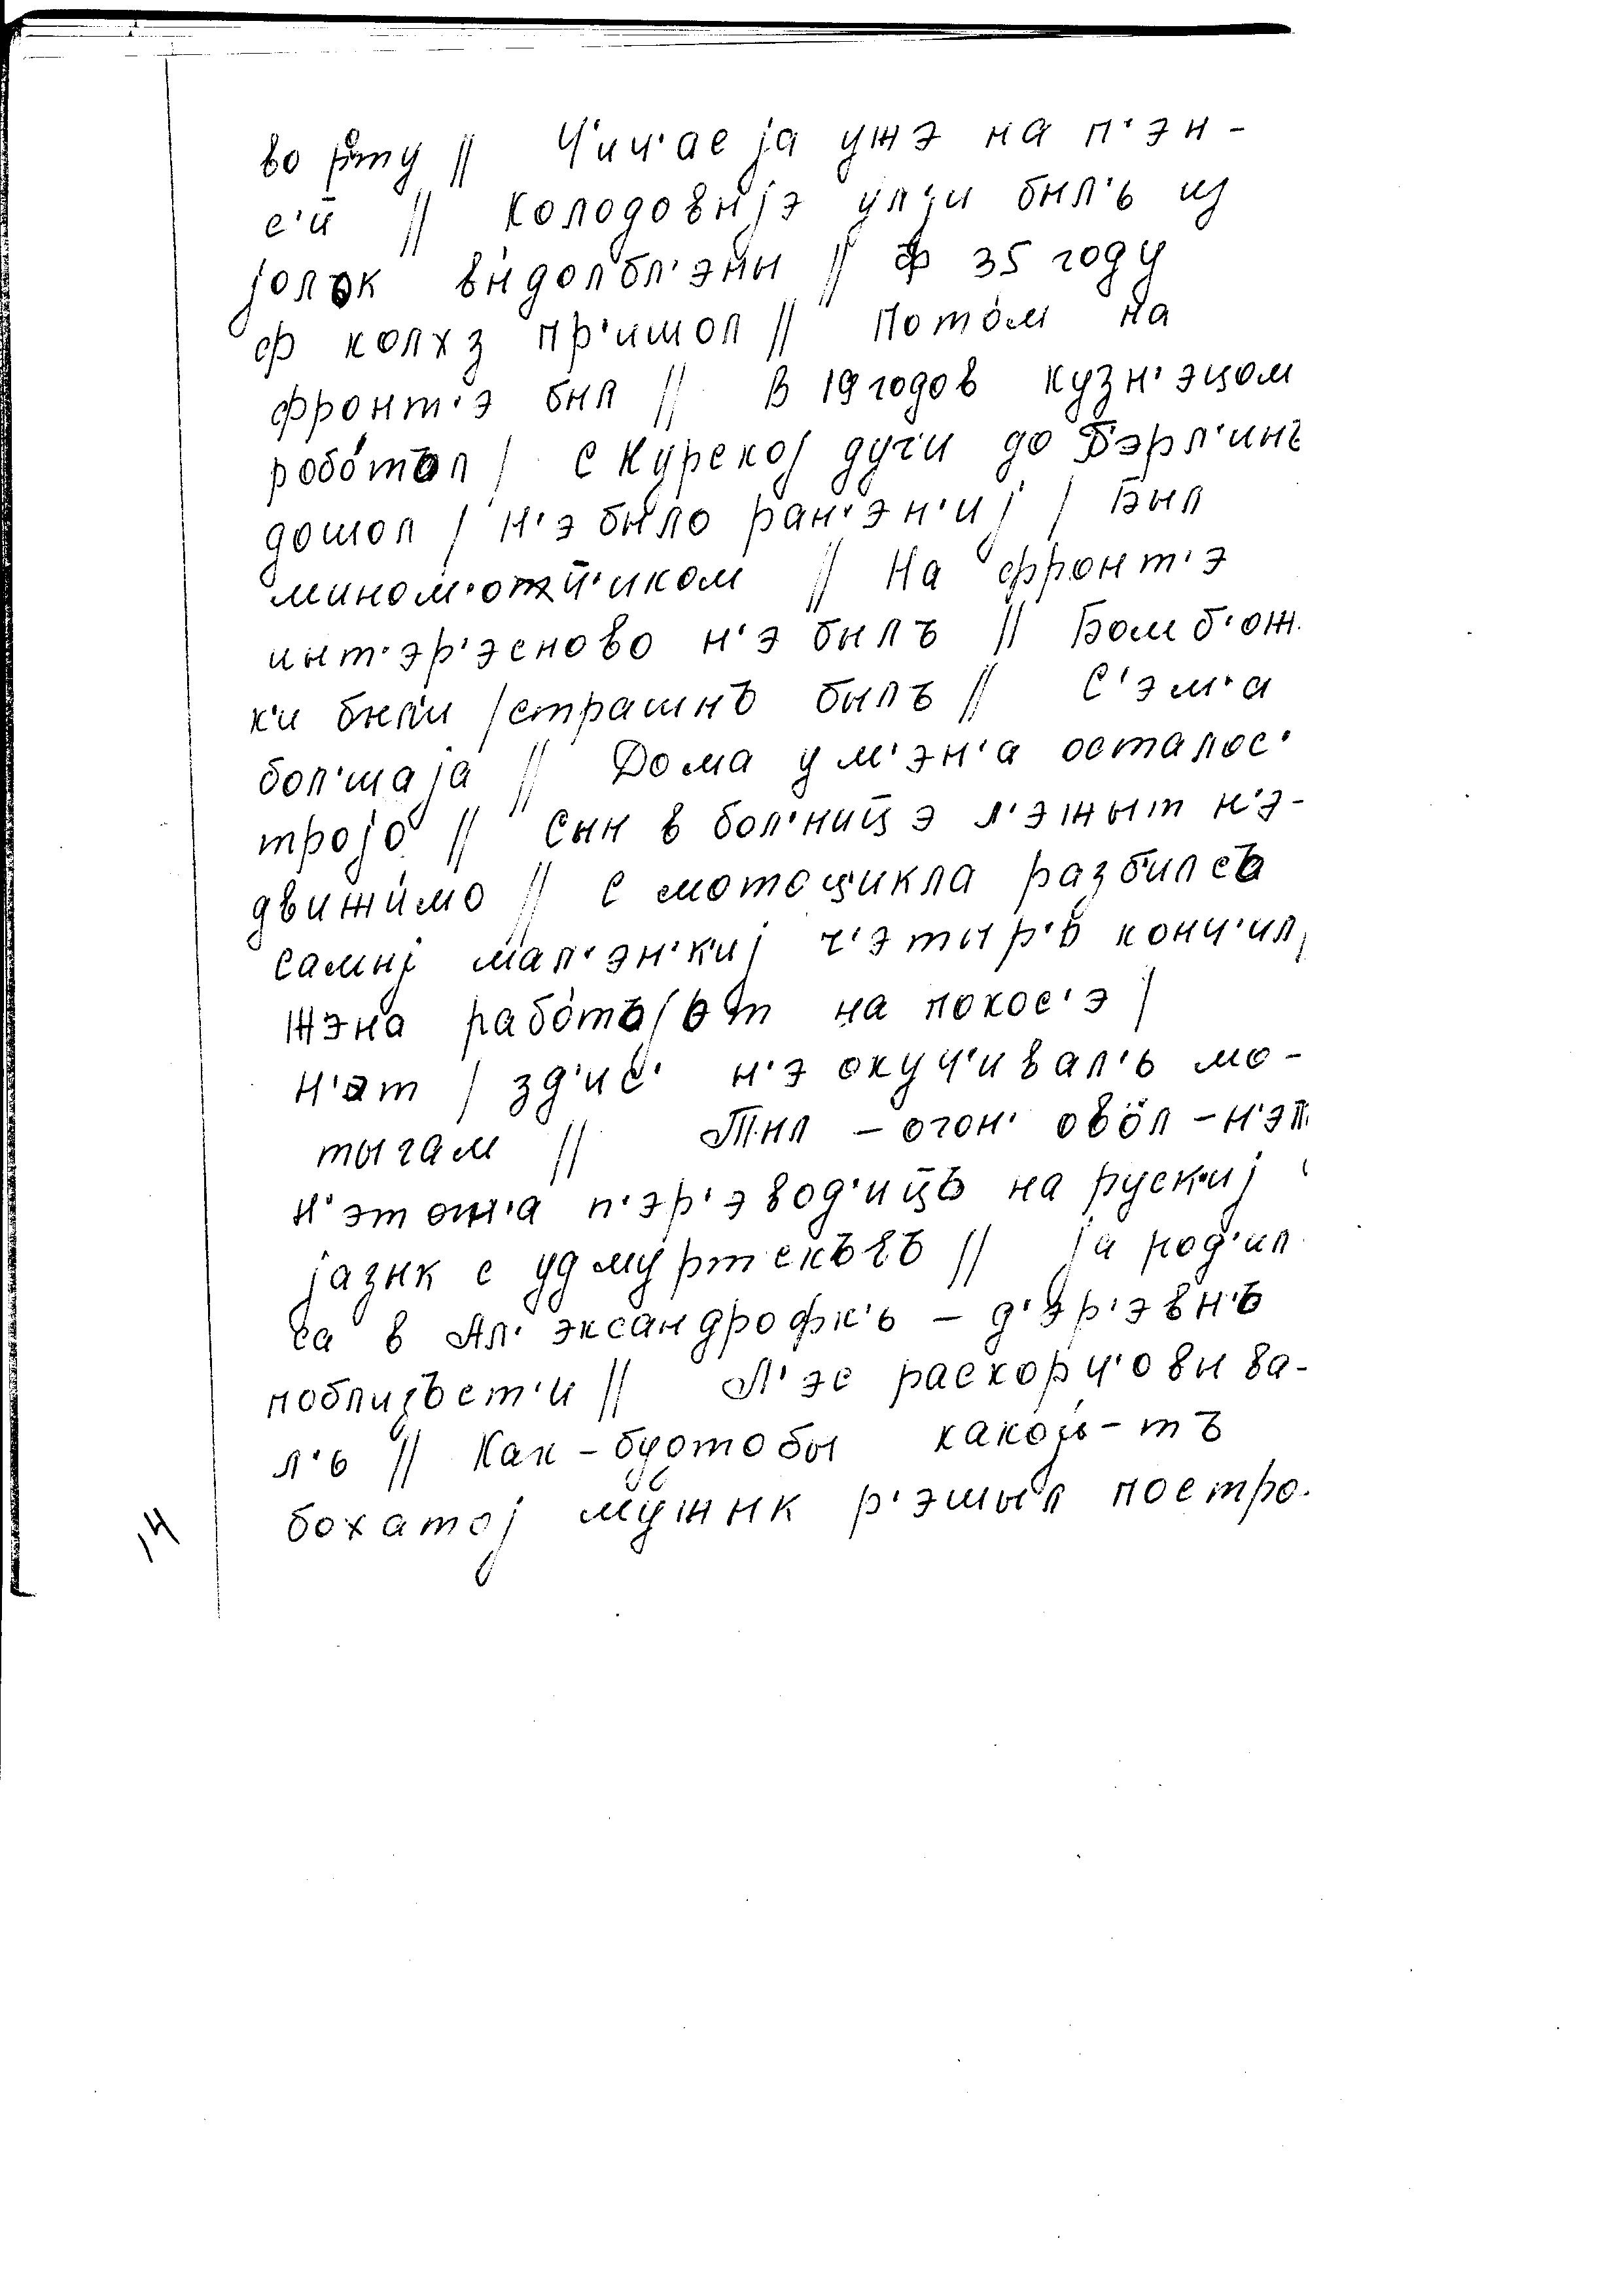 во рту // Ч'ич'ас ја ужэ на п'эн-
с'ии̅ // Колодовыјэ ул'ји был'ь из
јолък вы́долбл'эны // ф 35 году
ф колхз пр'ишол // Пото́м на
фронт'э был // В 19 годов кузн'эцом
робо́тъл / с Курској дуг'и до Б'эрл'инъ
дошол / н'э было ран'эн'иј / Был
мином'от ч̅'иком // На фронт'э
инт'эр'эсново н'э былъ // Бомб'ож
к'и был'и / страшнъ былъ // С'эм'а
бол'шаја // Дома у м'эн'а осталос'
тројо // Сын в бол'ниц̅э л'эжыт н'э-
движи́мо // с мотоцикла разб'илса
самыј мал'эн'к'иј ч'этыр'ь конч'ил,
Жэна рабо́тъјэт на покос'э /
н'ат / зд'ис' н'э окуч'ивал'ь мо-
тыгам // Тыл – огон' овӧл – н'эт
н'этогн'а п'эр'эвод'иц̅ъ на руск'иј
јазык с удму́ртскъгъ // ја род'ил
са в Ал'эксандрофк'ь – д'эр'эвн'ь
поблизъст'и // Л'эс раскорч'овыва-
л'ь // Как-бутобы какој-тъ
бохатој мужык р'эшыл постро-
14